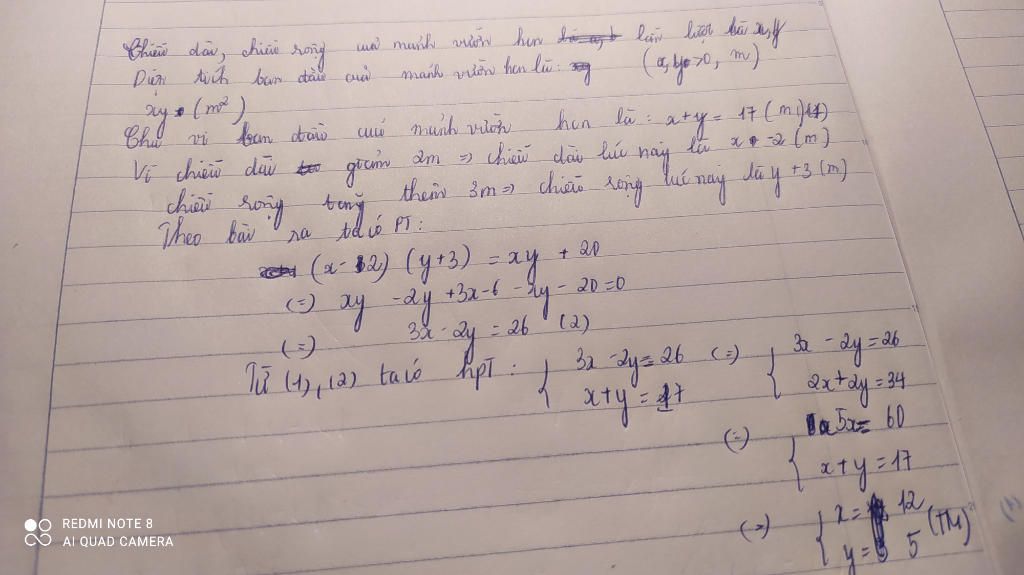 Chiều dài, chiều rộng của mảnh vườn hcn lần lượt là x, y
(x, y >0, m)
Diện tích ban đầu của mảnh vườn hcn là:
xy (m²)
Chu vi ban đầu của mảnh vườn hcn là: x+y = 17 (m) (1)
Vì chiều dài giảm 2m => chiều dài lúc này là x -2 (m)
chiều rộng tăng thêm 3m => chiều rộng lúc này là y +3 (m)
Theo bài ra ta có PT:
(x-2) (y+3) = xy + 20
(=) xy -2y +3x-6 -xy - 20 =0
(=) 3x-2y = 26 (2)
Từ (1), (2) ta có hpT: { 3x -2y = 26 (=) { 3x - 2y = 26
x+y = 17 2x+2y = 34
(=) { 5x = 60
x+y = 17
(=) { x = 12 (TM)
y = 5
REDMI NOTE 8
AI QUAD CAMERA